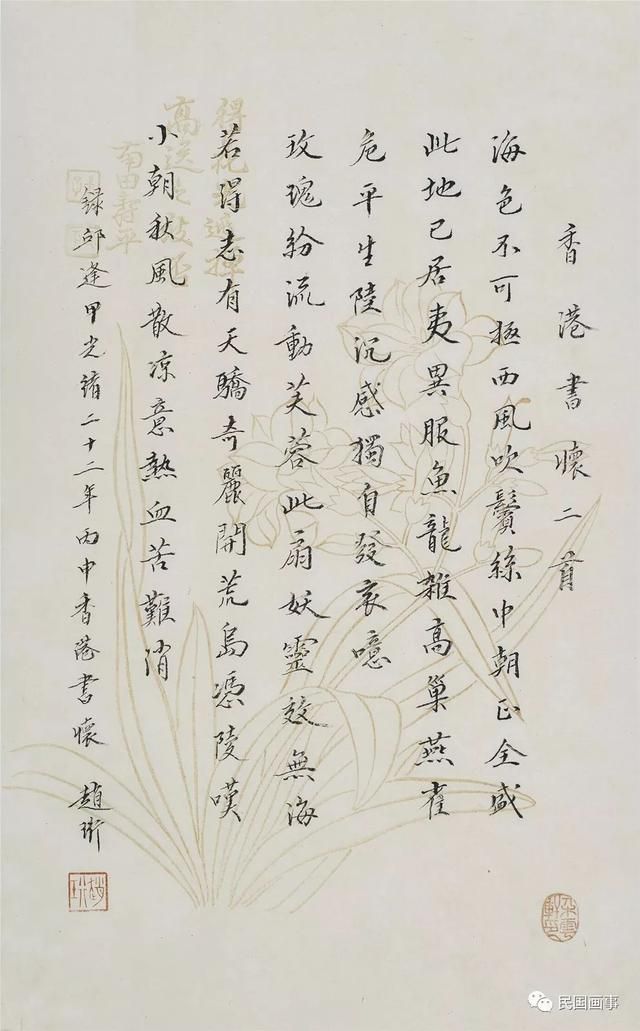 香港書懷二首
海色不可極西風吹鬢絲中朝正全盛
此地已居夷異服魚龍雜高巢燕雀
危平生陸沉感獨自發哀噫
玫瑰紛流動芙蓉此扇妖靈效無海
若得志有天驕奇麗開荒島憑陵嘆
小朝秋風散涼意熱血苦難消
錄邱逢甲光緒二十二年丙申香港書懷 趙珩
趙珩
朵雲軒
南田壽平
民国画事